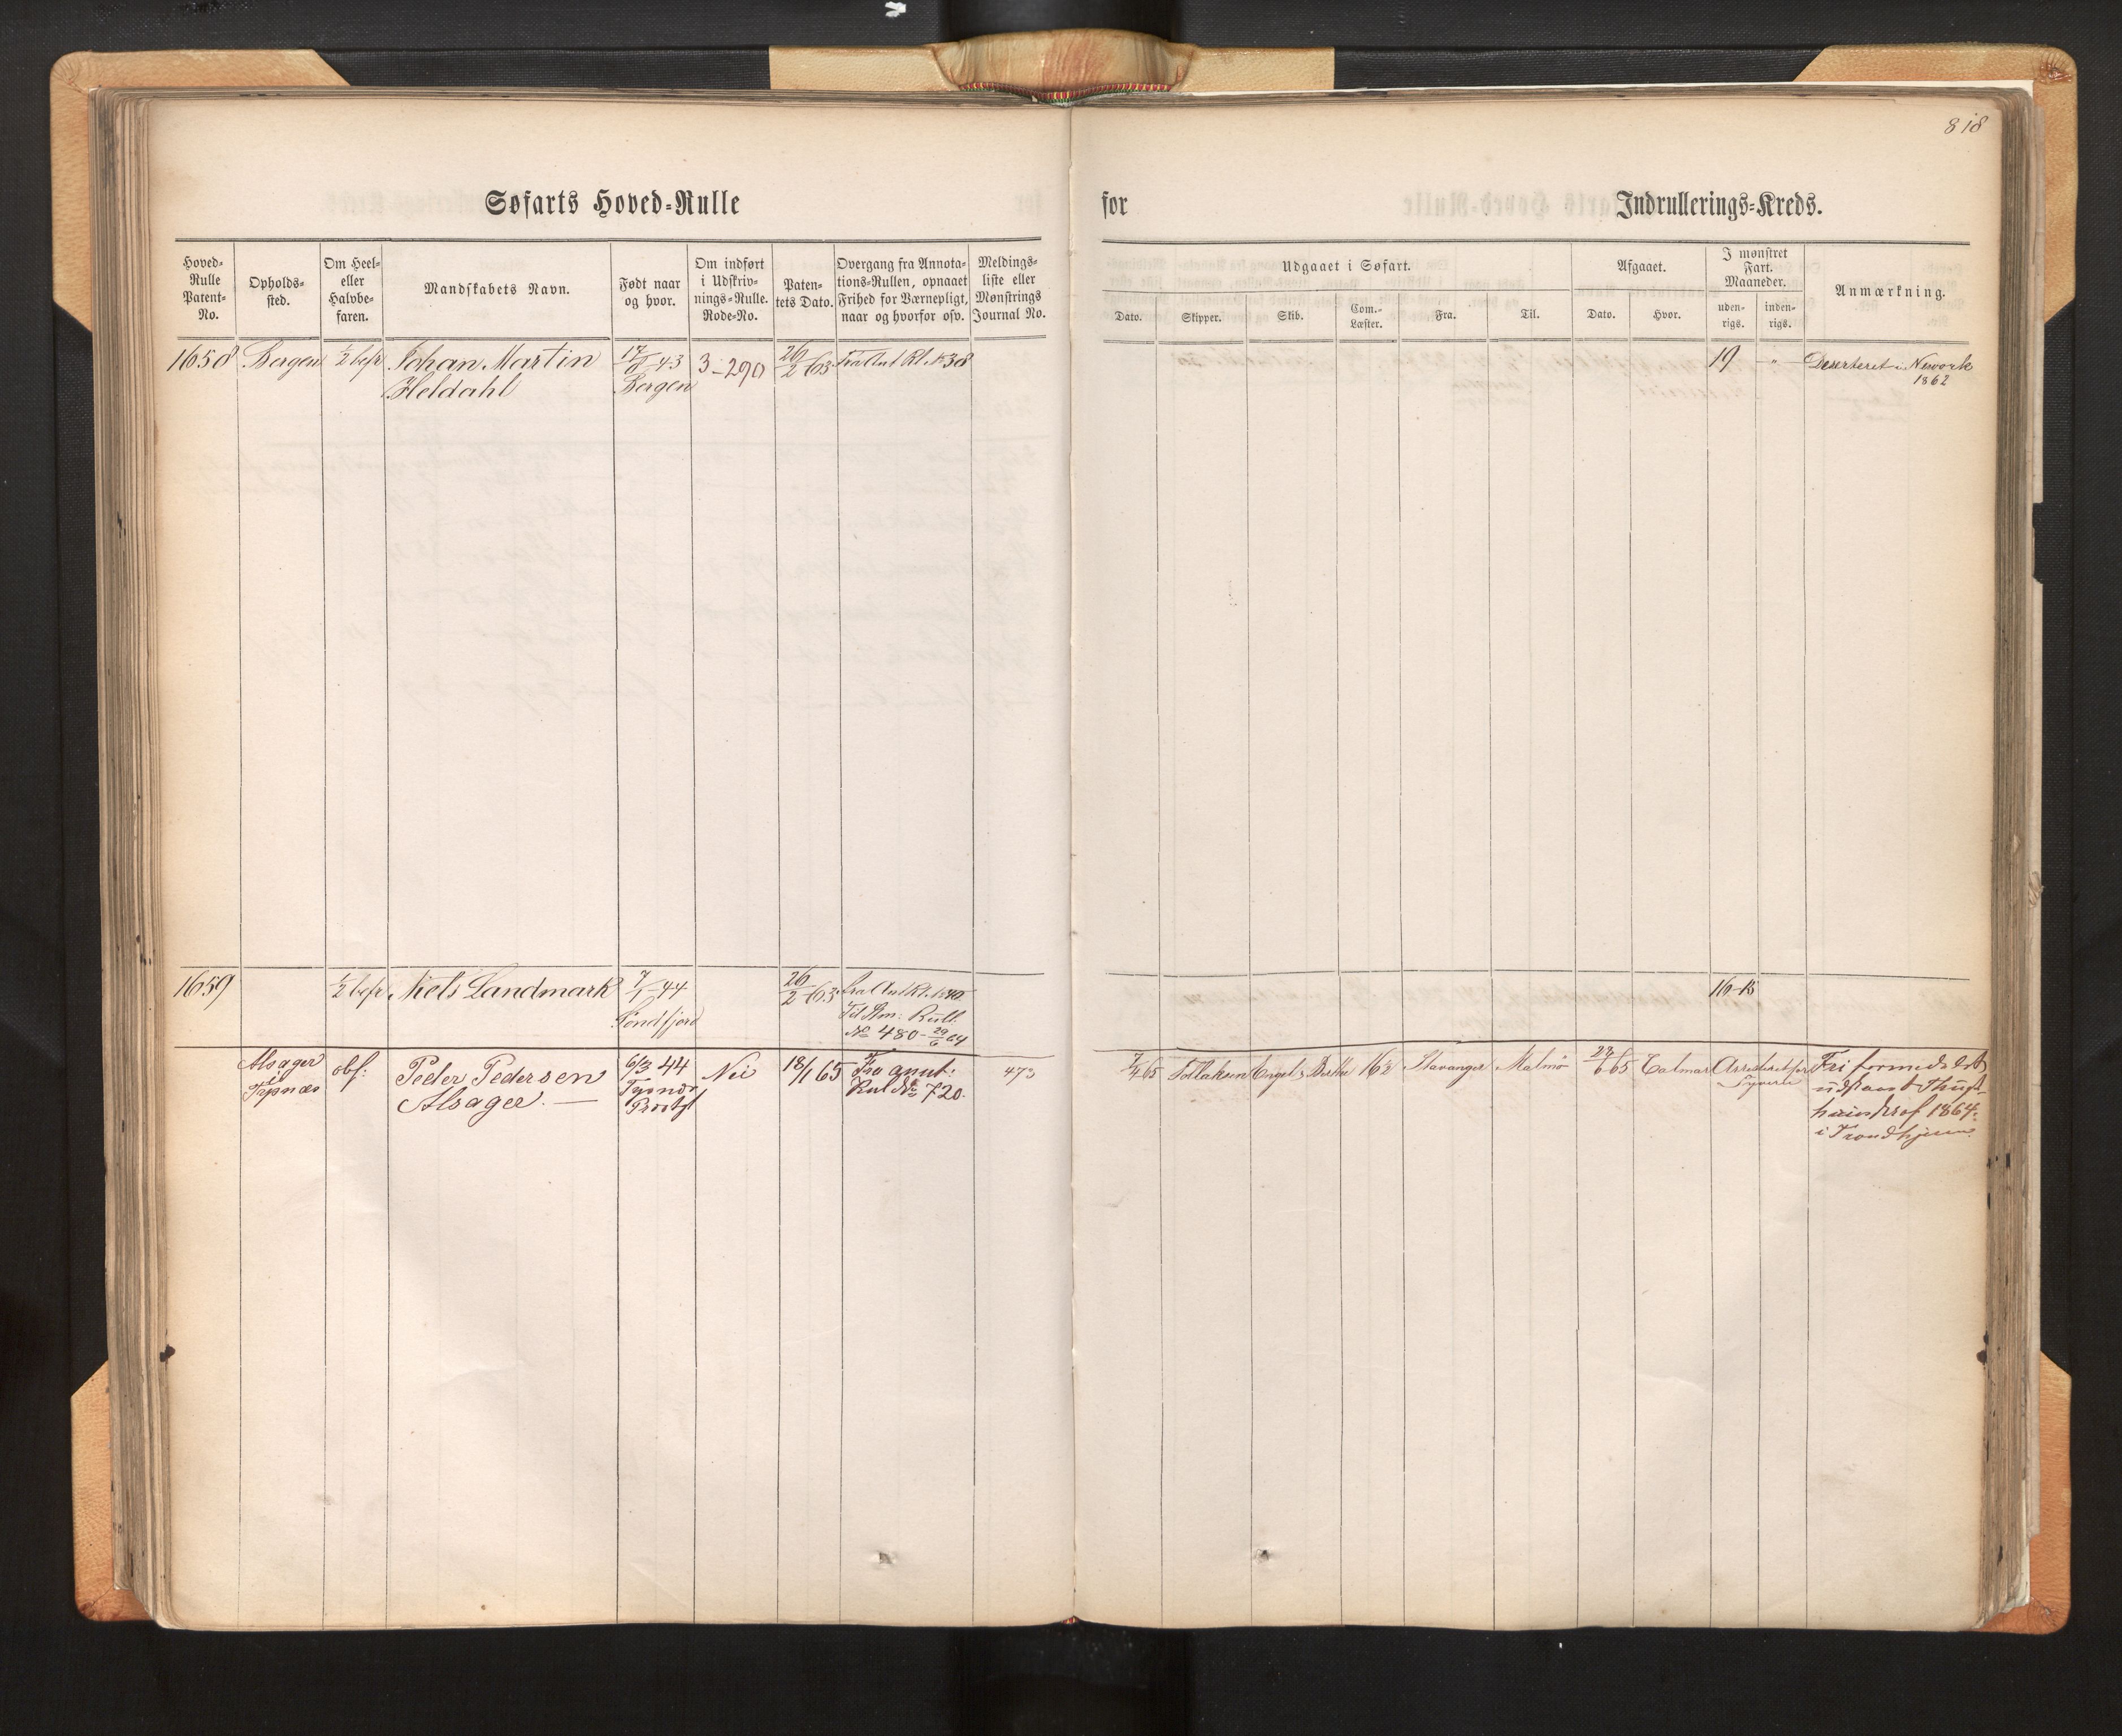 818
Søfarts Hoved-Rulle
for
Indrullerings-Kreds.
Hoved-
Rulle
Patent-
No.
Opholds-
sted.
Om Heel-
eller
Halvbe-
faren.
Mandskabets Navn.
Født naar
og hvor.
Om indført
i Udskriv-
nings-Rulle.
Rode-No.
Paten-
tets Dato.
Overgang fra Annota-
tions-Rullen, opnaaet
Frihed for Værnepligt,
naar og hvorfor osv.
Meldings-
liste eller
Mønstrings
Journal No.
Udgaaet i Søfart.
Dato.
Skipper.
Skib.
Com.-
Læster.
Fra.
Til.
Afgaaet.
Dato.
Hvor.
I mønstret
Fart.
Maaneder.
uden-
rigs.
inden-
rigs.
Anmærkning.
1658 Bergen ½ befr Johan Martin
Heldahl
17/6 43
Bergen
3-290
26/2 63
Fra Ant Rl. No 38
19 - " -
Deserteret i Newyork
1862
1659 ½ befr Niels Landmark
7/1 44
Søndfjord
26/2 63
Fra Ant Rl. No 40
Til Stm: Rull.
No 480 - 29/6 64
16-15
Alsager
i
Tysnæs
obf:
Peder Pedersen
Alsager. —
6/3 44
Tysnæs
Præstgl
Nei
18/1 65
Fra annt:
Rul No 720.
473
7/4 65 Tollaksen Engel Berthe 162 Stavanger Malmö 23/6 65 Calmar Arresteret for
Tyverie
Fri formedelst
udstaaet Thugt-
huusstraf 1864.
i Trondhjem.